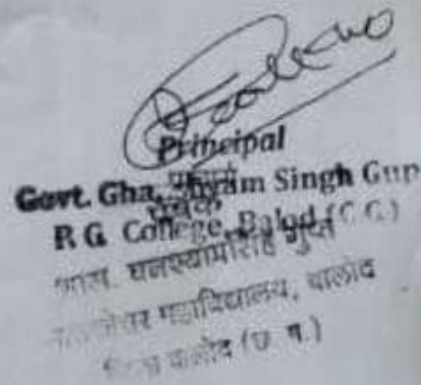 Principal
प्राचार्य
Govt. Ghanshyam Singh Gup
P.G. College, Balod (C.G.)
शास. घनश्यामसिंह गुप्त
महाविद्यालय, बालोद
बालोद (छ.ग.)